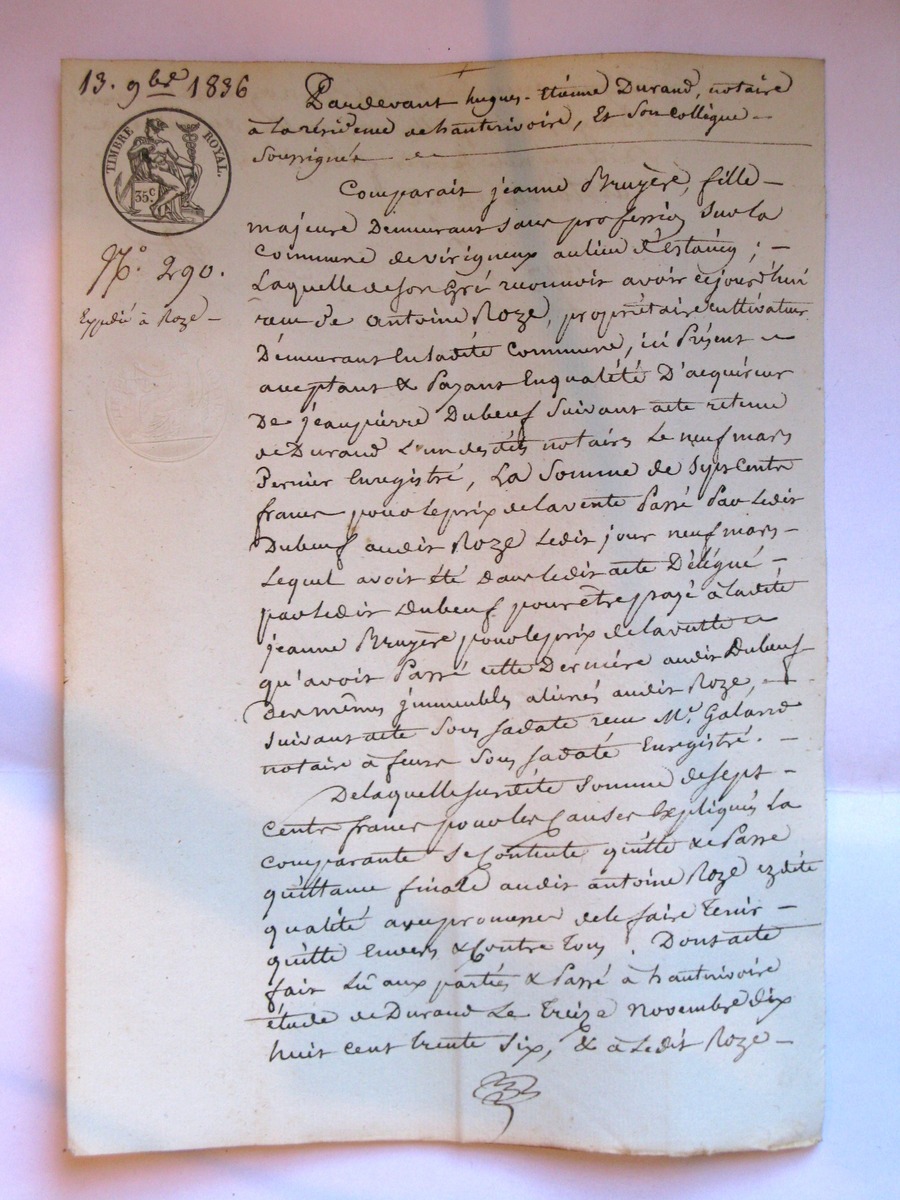 13. 9bre 1836
TIMBRE ROYAL.
35c
No. 290.
Expédié à Roze —
Pardevant hugues-Etienne Durand, notaire
à la résidence de hauterivoire, Et Son Collègue —
Soussignés —
Comparait jeanne Bruyère, fille —
majeure Demeurant Sans profession Sur la
Commune de virigneux au lieu d'Estancy ; —
Laquelle de Son Gré reconnoit avoir cejourd'hui
reçu De Antoine Roze, propriétaire cultivateur
Demeurant En ladite Commune, ici Présent
acceptant & Payant En qualité D'acquéreur
De jean pierre Dubeuf Suivant acte retenu
de Durand L'un desdits notaires Le neuf mars
Dernier Enregistré, La Somme de Sept Cents
francs pour le prix de la vente Passé Par Ledit
Dubeuf audit Roze Ledit jour neuf mars —
Lequel avoit été dans ledit acte Délégué —
par ledit Dubeuf pour être payé à ladite
jeanne Bruyère pour le prix de la vente
qu'avoit Passé cette Dernière audit Dubeuf
Des mêmes jmmeubles aliénés audit Roze, —
Suivant acte Sous sa date reçu Me. Galand
notaire à feurs Sous sa date Enregistré. —
De laquelle Susdite Somme de Sept —
Cents francs pour les Causes Expliqués La
comparante Se Contente quitte & Passe
quittance finale audit antoine Roze ezdite
qualité avec promesse de le faire Tenir —
quitte Envers & Contre Tous. Dont acte
fait Lû aux parties & Passé à hauterivoire
étude de Durand Le Treize novembre dix
huit cent trente Six, & a Ledit Roze —